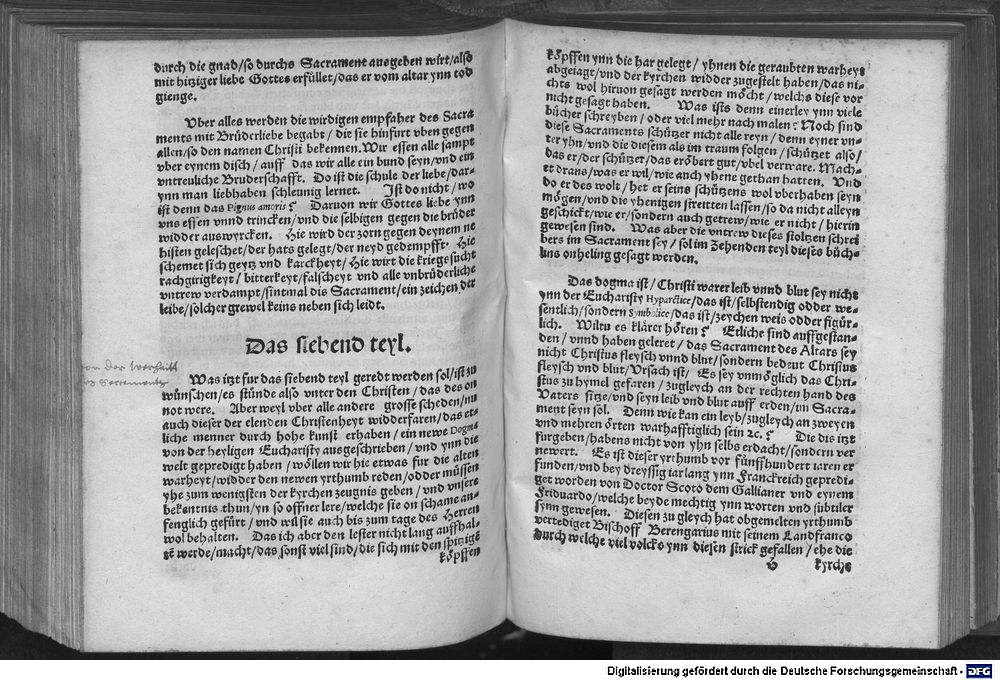 durch die gnad/so durchs Sacrament ausgeben wirt/also
mit hitziger liebe Gottes erfüllet/das er vom altar ynn tod
gienge.
Vber alles werden die wirdigen empfaher des Sacra
ments mit Brüderliebe begabt/die sie hinfurt vben gegen
allen/so den namen Christi bekennen. Wir essen alle sampt
vber eynem disch/auff das wir alle ein bund seyn/vnd ein
vntreuliche Bruderschafft. Do ist die schule der liebe/dar-
ynn man liebhaben schleunig lernet. Ist do nicht/wo
ist denn das Pignus amoris? Daruon wir Gottes liebe ynn
vns essen vnnd trincken/vnd die selbigen gegen die brüder
widder auswyrcken. Hie wird der zorn gegen deynem ne
histen geleschet/der hats gelegt/der neyd gedempfft. Hie
schemet sich geytz vnd karckheyt/Hie wirt die kriege sucht
rachgirigkeyt/bitterkeyt/falscheyt vnd alle vnbrüderliche
vntrew verdampt/sintmal dis Sacrament/ein zeichen der
leibe/solcher grewel keins neben sich leidt.
Das siebend teyl.
von der
Sacraments
Was itzt fur das siebend teyl geredt werden sol/ist zu
wünschen/es stünde also vnter den Christen/das des on
not were. Aber weyl vber alle andere grosse scheden/nu
auch dieser der elenden Christenheyt widderfaren/das et-
liche menner durch hohe kunst erhaben/ein newe Dogma
von der heyligen Eucharisty ausgeschrieben/vnd ynn die
welt gepredigt haben/wöllen wir hie etwas fur die alten
warheyt/widder den newen yrthumb reden/odder müssen
yhe zum wenigsten der kyrchen zeugnis geben/vnd vnsere
bekentnis thun/yn so offner lere/welche sie on schame an-
fenglich gefürt/vnd wil sie auch bis zum tage des Herren
wol behalten. Das ich aber den lester nicht lang auffhal-
te werde/macht/das sonst viel sind/die sich mit den spitzige
köpffen
köpffen ynn die har gelegt/yhnen die geraubten warheyt
abgeiagt/vnd der kyrchen widder zugestelt haben/das ni-
chts wol hiruon gesagt werden möcht/welchs diese vor
nicht gesagt haben. Was ists denn einerley ynn viele
bücher schreyben/oder viel mehr nach malen? Noch sind
diese Sacraments schützer nicht alle reyn/denn eyner vn-
ter yhn/vnd die diesem als im traum folgen/schützet also/
das er/der schützer/das eröbert gut/vbel verware. Mach-
et drans/was er wil/wie auch yhene gethan hatten. Vnd
do er des wolt/het er seins schützens wol vberhaben seyn
mögen/vnd die yhenigen streitten lassen/so da nicht alleyn
geschickt/wie er/sondern auch getrew/wie er nicht/hierin
gewesen sind. Was aber die vntrew dieses stoltzen schrei
bers im Sacrament sey/sol im Zehenden teyl dieses büch-
lins onheling gesagt werden.
Das dogma ist/Christi warer leib vnnd blut sey nicht
ynn der Eucharisty Hyparctice/das ist/selbstendig odder we-
sentlich/sondern Symbolice/das ist/zeychen weis odder figür-
lich. Wiltu es klärer hören? Etliche sind auffgestan-
den/vnnd haben geleret/das Sacrament des Altars sey
nicht Christus fleysch vnnd blut/sondern bedeut Christus
fleysch vnd blut/Vrsach ist/Es sey vnmöglich das Chri-
stus zu hymel gefaren/zugleych an der rechten hand des
Vaters sitze/vnd seyn leib vnd blut auff erden/im Sacra-
ment seyn sol. Denn wie kan ein leyb/zugleych an zweyen
vnd mehren örten warhafftiglich sein ꝛc.? Die dis itzt
fürgeben/habens nicht von yhn selbs erdacht/sondern ver
newert. Es ist dieser yrthumb vor fünffhundert iaren er
funden/vnd bey dreyssig iar lang ynn Franckreich gepredi-
get worden von Doctor Scoto dem Gallianer vnd eynem
Friduardo/welche beyde mechtig ynn worten vnd subtiler
synn gewesen. Diesen zu gleych hat obgemelten yrthumb
vertediget Bischoff Berengarius mit seinem Landfranco
durch welche viel volcks ynn diesen strick gefallen/ehe die
kyrche
Digitalisierung gefördert durch die Deutsche Forschungsgemeinschaft - DFG